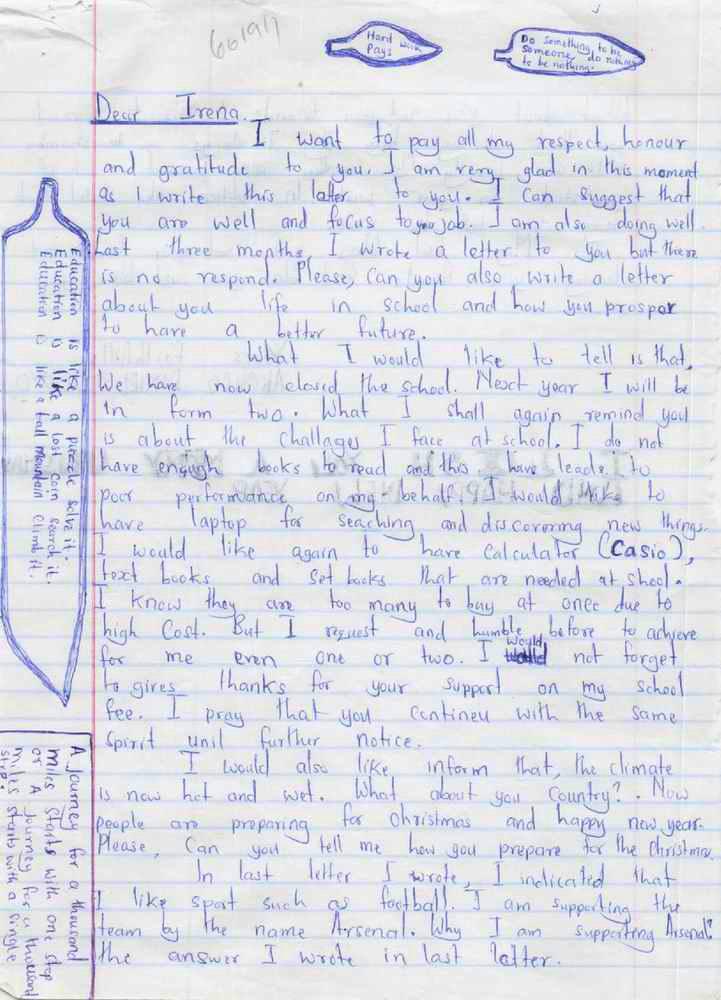 661917
Hard work
Pays
Do something to be
someone, do nothing
to be nothing.
Dear Irena.
I want to pay all my respect, honour
and gratitude to you. I am very glad in this moment
as I write this latter to you. I can suggest that
you are well and focus to you job. I am also doing well.
Last three months, I wrote a letter to you but there
is no respond. Please, can you also write a letter
about you life in school and how you prosper
to have a better future.
What I would like to tell is that,
We have now closed the school. Next year I will be
in form two. What I shall again remind you
is about the challages I face at school. I do not
have enough books to read and this have leads to
poor performance on my behalf. I would like to
have laptop for seaching and discovering new things.
I would like again to have calculator (Casio),
text books and set books that are needed at shool.
I know they are too many to buy at once due to
high cost. But I request and humble before to achieve
for me even one or two. I would not forget
to gives thanks for your support on my school
fee. I pray that you contineu with the same
spirit unil further notice.
I would also like inform that, the climate
is now hot and wet. What about you country? . Now
people are preparing for christmas and happy new year.
Please, can you tell me how you prepare for the christmas.
In last letter I wrote, I indicated that
I like sport such as football. I am supporting the
team by the name Arsenal. Why I am supporting Arsenal?
the answer I wrote in last letter.
Education is like a puzzle solve it.
Education is like a lost coin search it.
Education is like a tall mountain climb it.
A journey for a thousand
miles starts with one step
or A journey for a thousand
miles starts with a single
step.